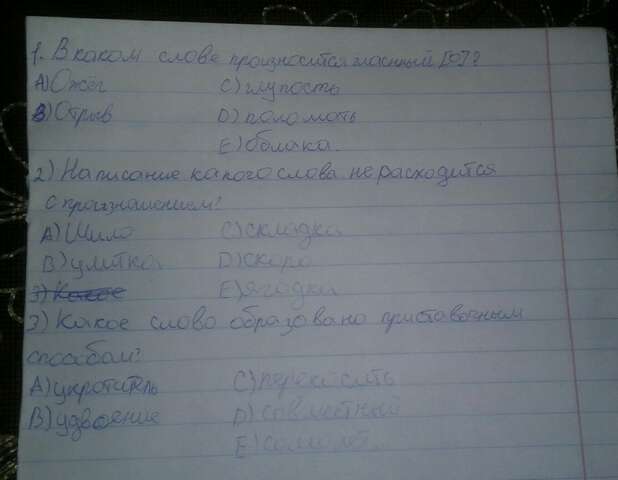 1. В каком слове произносится гласный [О]?
А) Ожёг С) глупость
В) Отрыв D) поломать
Е) облака.
2) Написание какого слова не расходится
с произношением?
А) Шило С) складка
В) улитка D) скоро
3) Какое Е) ягодка
3) Какое слово образовано приставочным
способом?
А) укротитель С) перекосить
В) удвоение D) совместный
Е)